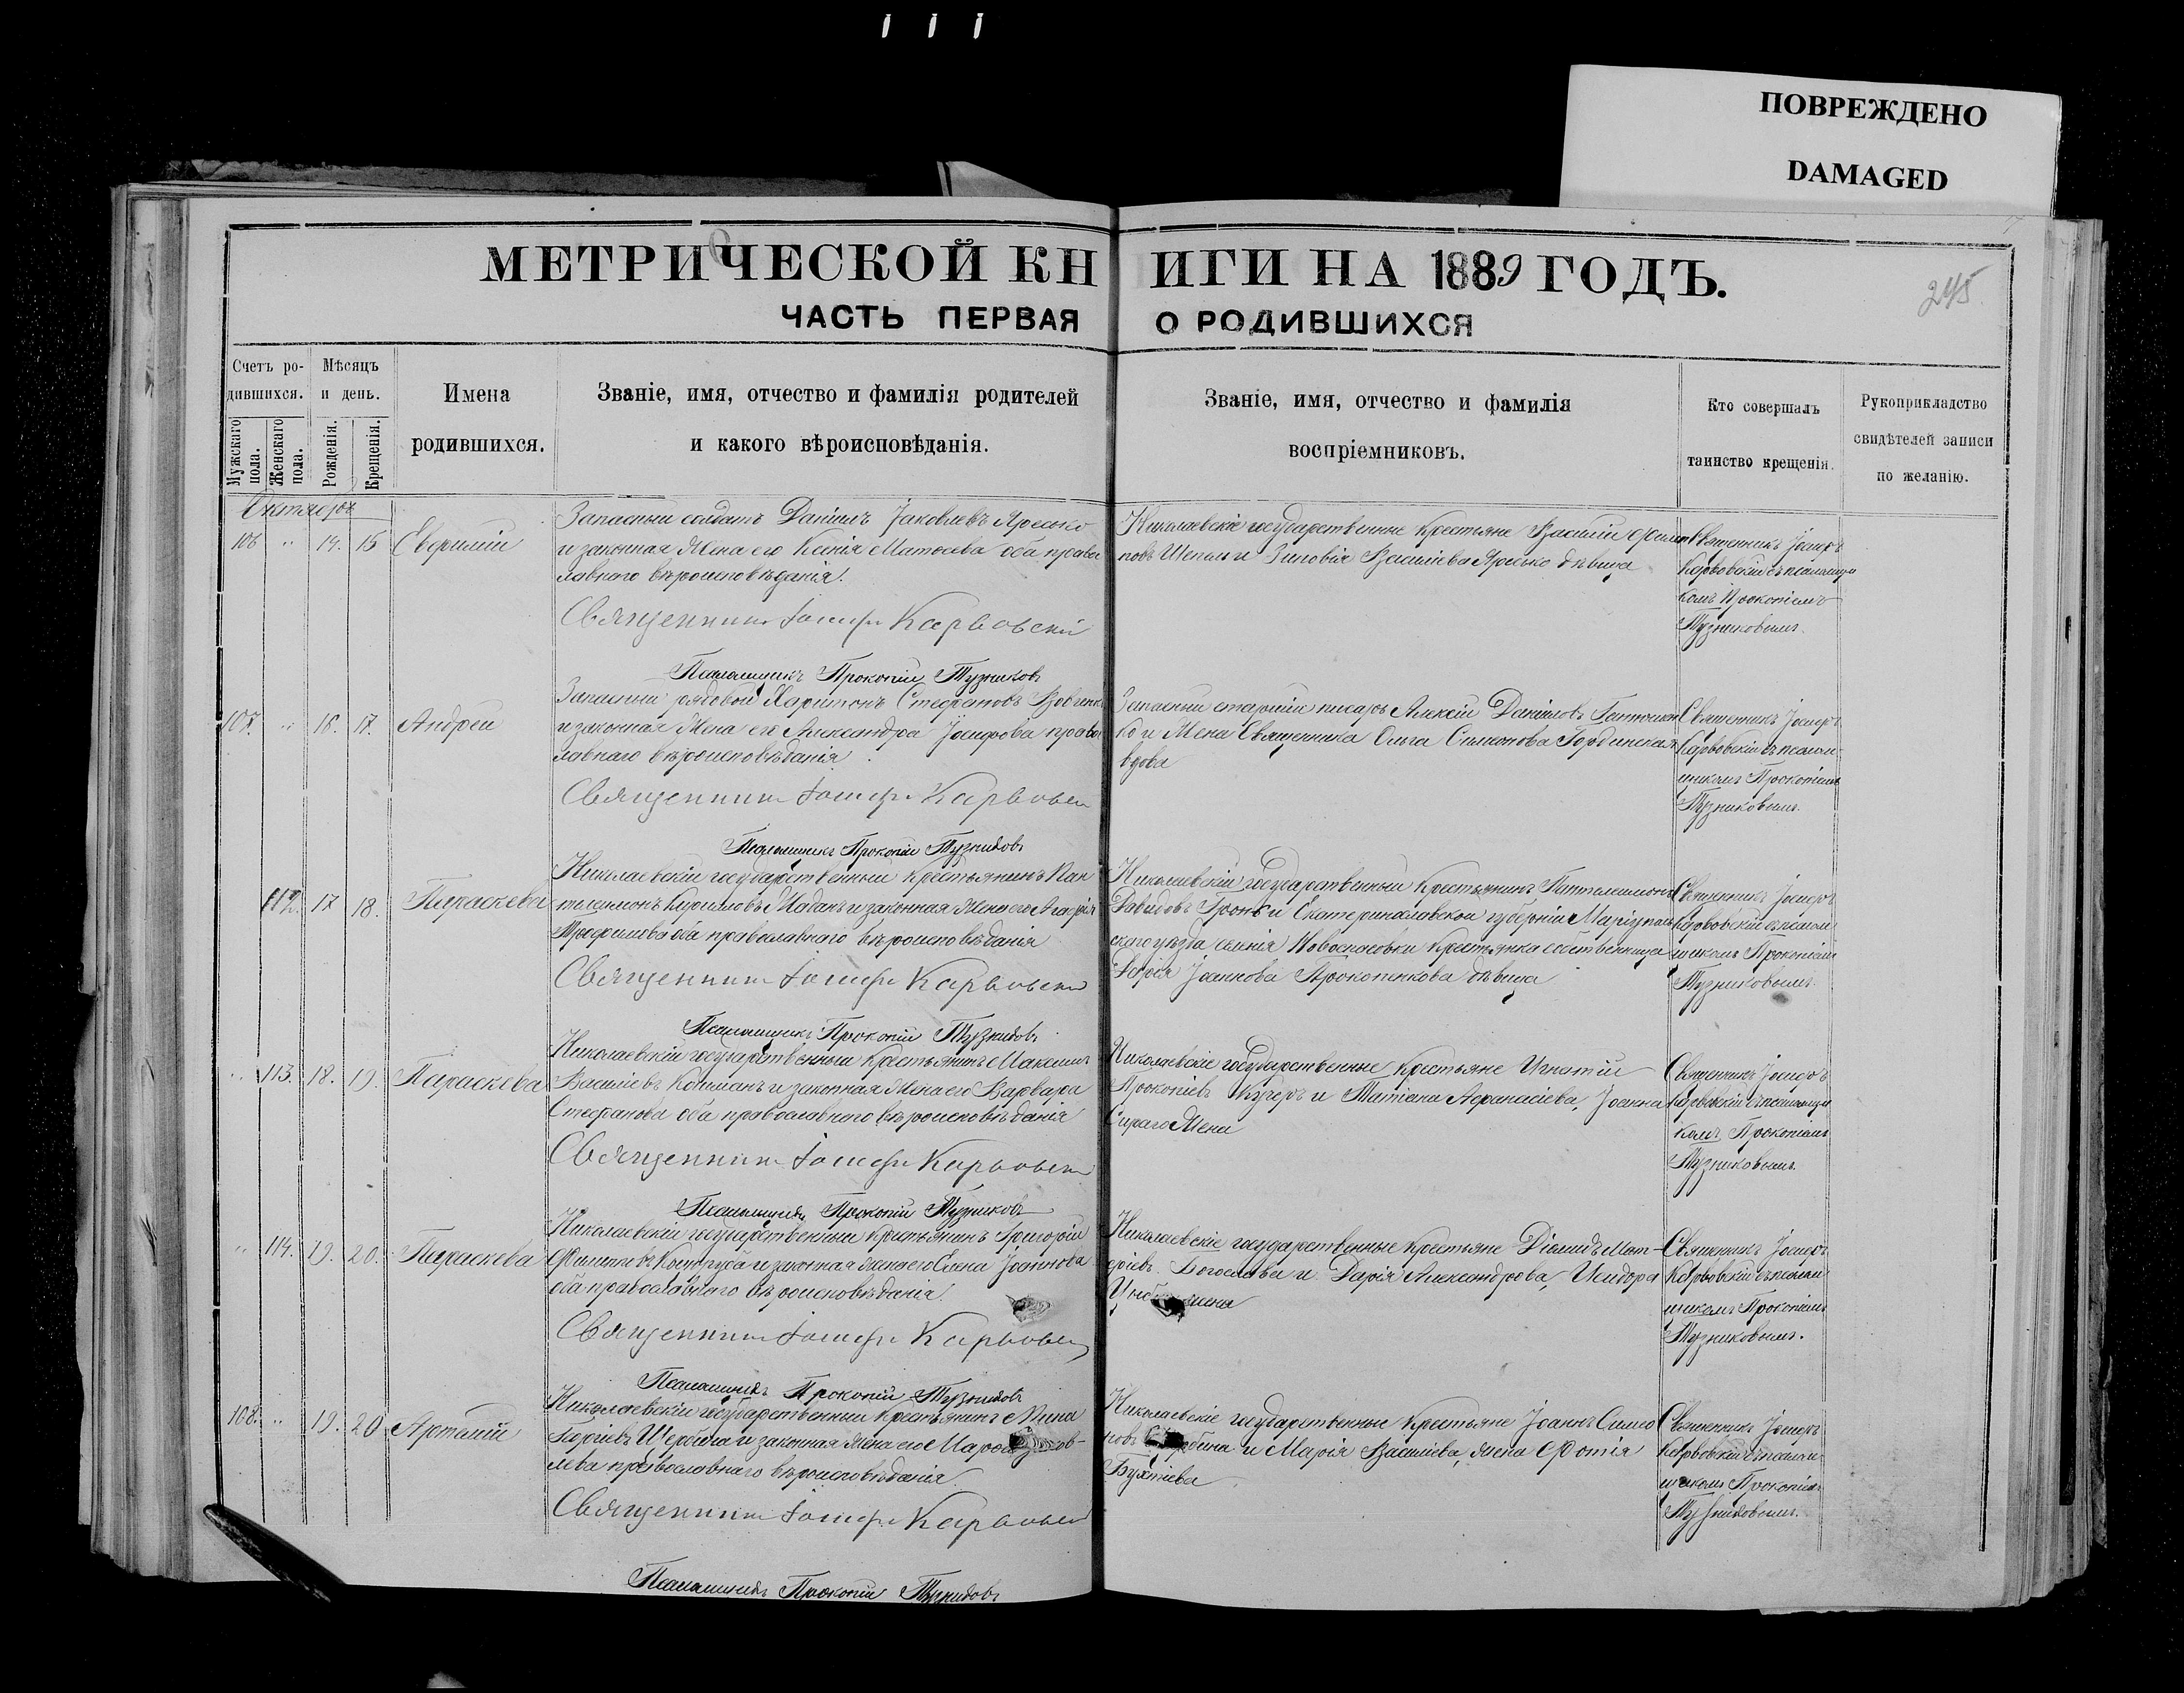 ПОВРЕЖДЕНО
DAMAGED
МЕТРИЧЕСКОЙ КНИГИ НА 1889 ГОДЪ.
ЧАСТЬ ПЕРВАЯ О РОДИВШИХСЯ
245
Счетъ ро-
дившихся.
Мужскаго
пола.
Женскаго
пола.
Мѣсяцъ
и день.
Рожденія.
Крещенія.
Имена
родившихся.
Званіе, имя, отчество и фамилія родителей
и какого вѣроисповѣданія.
Званіе, имя, отчество и фамилія
воспріемниковъ.
Кто совершалъ
таинство крещенія.
Рукоприкладство
свидѣтелей записи
по желанію.
Октябрь
106 " 14. 15
Запасный солдатъ Даніилъ Іаковлевъ Яресько
и законная жена его Ксенія Матѳеева оба право
славнаго вѣроисповѣданія.
Священникъ Іосифъ Карвовскій
Псаломщикъ Прокопій Тузниковъ
Николаевскіе государственные крестьяне Василій Филип
повъ и Зиновія Васильева Яресько дѣвица
Священникъ Іосифъ
Карвовскій съ псаломщи
комъ Прокопіемъ
Тузниковымъ.
107. " 16. 17. Андрей
Запасный рядовой Харитонъ Стефановъ
и законная жена его Александра Іосифова право
славнаго вѣроисповѣданія.
Священникъ Іосифъ Карвовскій
Псаломщикъ Прокопій Тузниковъ
Запасный старшій писарь Алексій Даніиловъ
ко и жена Священника Ольга Симеонова Гординская
вдова
Священникъ Іосифъ
Карвовскій съ псалом
щикомъ Прокопіемъ
Тузниковымъ.
112. 17 18. Параскева
Николаевскій государственный крестьянинъ Пан
телеимонъ Кириловъ и законная жена его Агафія
Трофимова оба православнаго вѣроисповѣданія
Священникъ Іосифъ Карвовскій
Псаломщикъ Прокопій Тузниковъ
Николаевскій государственный крестьянинъ Пантелеимонъ
Давидовъ и Екатеринославской губерніи Маріуполь
скаго уѣзда Новоспасовки крестьянка собственница
Іоаннова дѣвица
Священникъ Іосифъ
Карвовскій съ псалом
щикомъ Прокопіемъ
Тузниковымъ.
" 113. 18. 19. Параскева
Николаевскій государственный крестьянинъ Максимъ
Василіевъ и законная жена его Варвара
Стефанова оба православнаго вѣроисповѣданія
Священникъ Іосифъ Карвовскій
Псаломщикъ Прокопій Тузниковъ
Николаевскіе государственные крестьяне Игнатій
Прокопіевъ Кучеръ и Татіана Аѳанасіева, Іоанна
Сираго жена
Священникъ Іосифъ
Карвовскій съ псаломщи
комъ Прокопіемъ
Тузниковымъ.
" 114. 19. 20. Параскева
Николаевскій государственный крестьянинъ Григорій
Филипповъ и законная жена его Елена Іоаннова
оба православнаго вѣроисповѣданія.
Священникъ Іосифъ Карвовскій
Псаломщикъ Прокопій Тузниковъ
Николаевскіе государственные крестьяне Діомидъ
и Дарія Александрова, Исидора
жена
Священникъ Іосифъ
Карвовскій съ псалом
щикомъ Прокопіемъ
Тузниковымъ.
108. " 19. 20. Артемій
Николаевскій государственный крестьянинъ Мина
Георгіевъ Щербина и законная жена его
лева православнаго вѣроисповѣданія.
Священникъ Іосифъ Карвовскій
Псаломщикъ Прокопій Тузниковъ
Николаевскіе государственные крестьяне Іоаннъ Симео
новъ и Марія Василіева, жена Фотія
Бухтіева
Священникъ Іосифъ
Карвовскій съ псалом
щикомъ Прокопіемъ
Тузниковымъ.